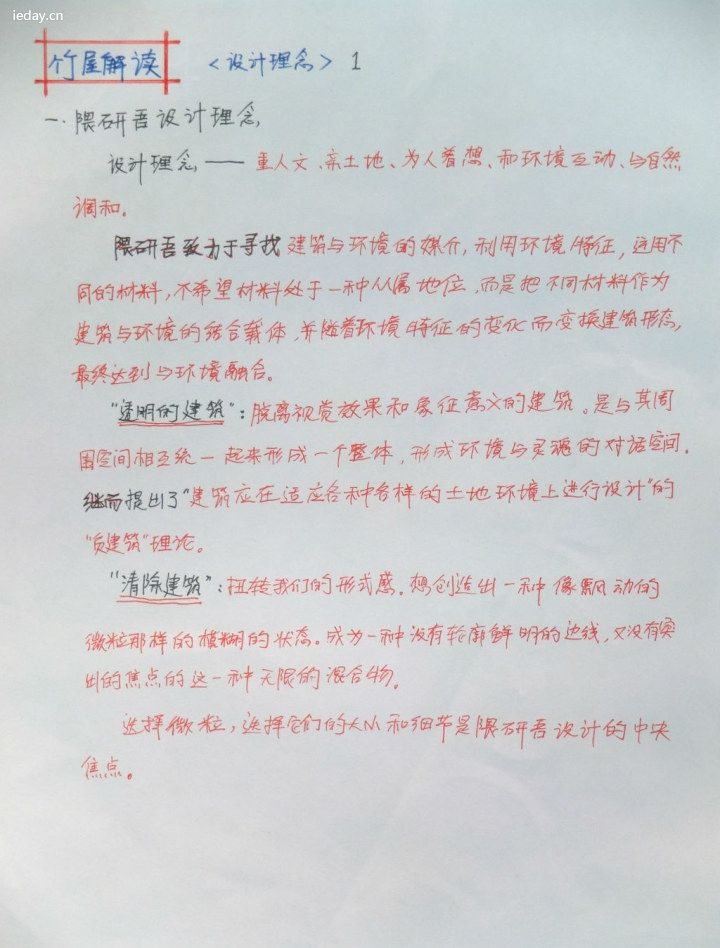 ieday.cn
竹屋解读 <设计理念> 1
一.隈研吾设计理念
设计理念——重人文、亲土地、为人着想、和环境互动、与自然
调和。
隈研吾致力于寻找建筑与环境的媒介,利用环境特征,运用不
同的材料,不希望材料处于一种从属地位,而是把不同材料作为
建筑与环境的结合载体,并随着环境特征的变化而变换建筑形态,
最终达到与环境融合。
"透明的建筑":脱离视觉效果和象征意义的建筑。是与其周
围空间相互统一起来形成一个整体,形成环境与灵魂的对话空间.
继而提出了"建筑应在适应各种各样的土地环境上进行设计"的
"负建筑"理论。
"清除建筑":扭转我们的形式感.想创造出一种像飘动的
微粒那样的模糊的状态。成为一种没有轮廓鲜明的边线,又没有突
出的焦点的这一种无限的混合物.
选择微粒,选择它们的大小和细节是隈研吾设计的中央
焦点。